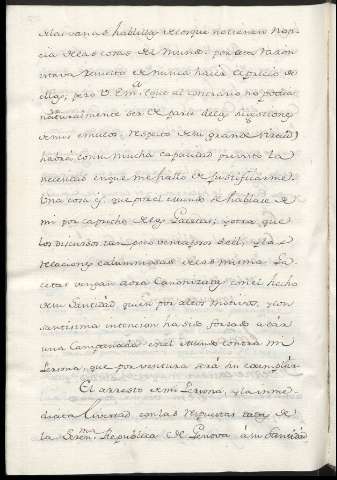 de las vanas hablillas de los que no tienen noti-
cia de las cosas del Mundo: por esta razon
estava resuelto de nunca hacer aprecio de
ellas; pero V. Em.ª (que al contrario no podia
naturalmente ser de parte de las sugestiones
de mis emulos, respeto de su grande virtud)
habrá con mucha capacidad previsto la
necesidad en que me hallo de justificarme.
Una cosa es, que por el Mundo se hablase de
mi por capricho de las Gacetas; y otra que
los discursos tan poco ventajosos de el, y las
relaciones calumniosas de las mismas Ga-
cetas vengan aora Canonizadas con el hecho
de su Santidad, quien por altos motivos, y con
santissima intencion ha sido forzado a dár
una Campanada en el Mundo contra mi
Persona, que por ventura será sin exemplar.
El arresto de mi Persona, y la inme-
diata libertad con las respuestas de
la Seren.ma Republica de Genova á su Santidad